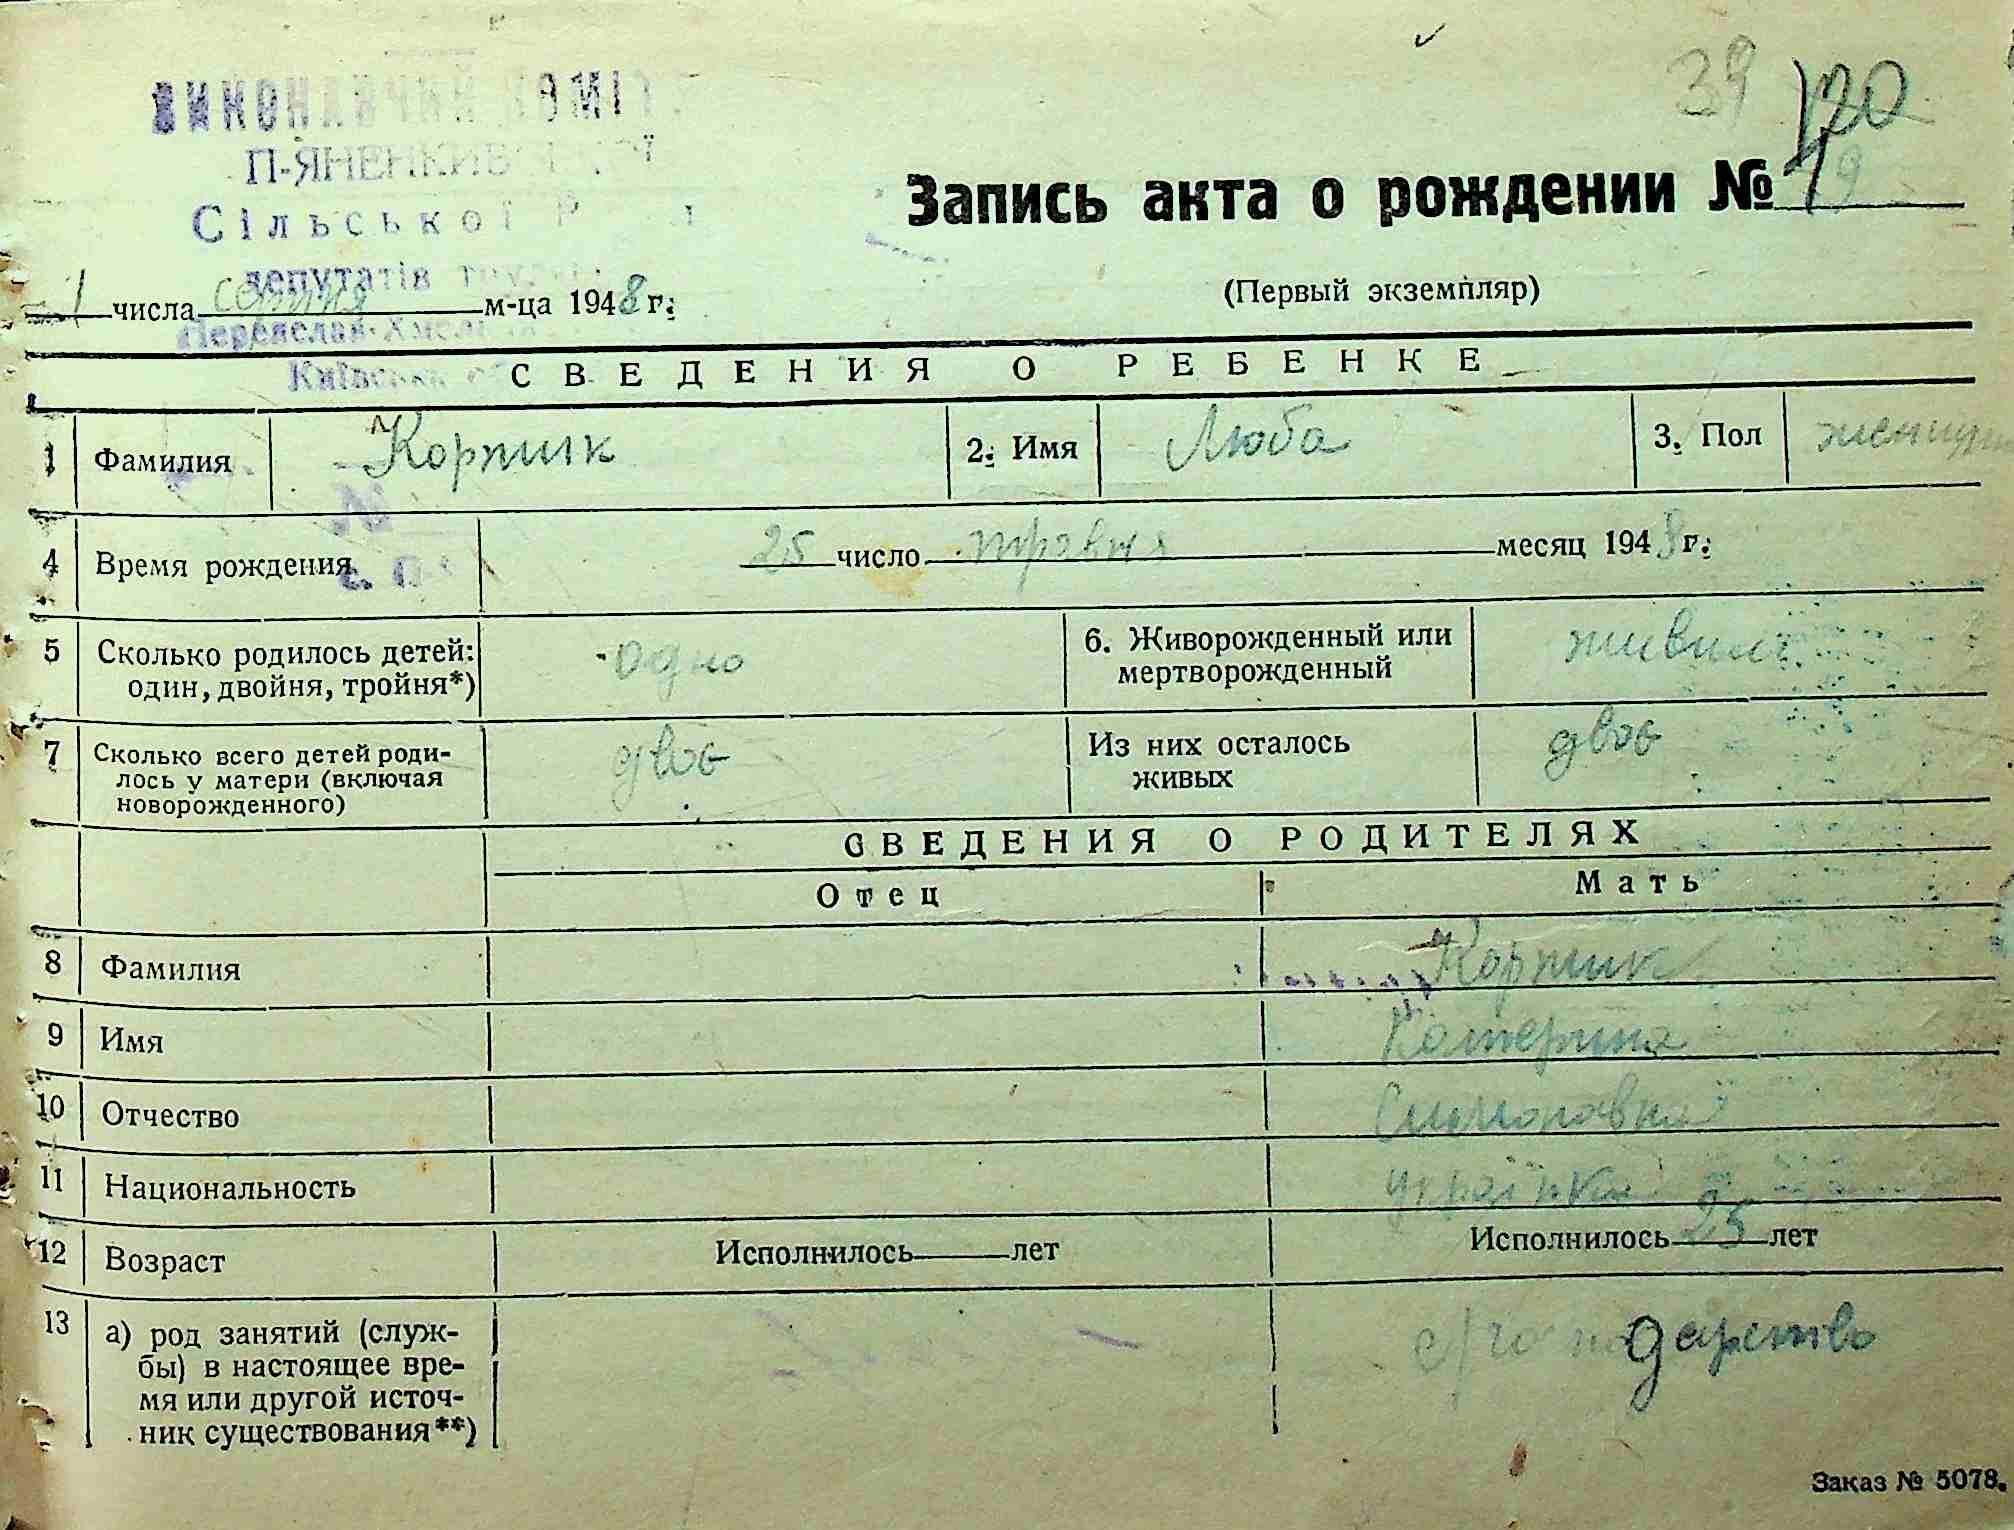 39 120
ВИКОНАВЧИЙ КОМІ
П-ЯНЕНКИВСЬКОЇ
Запись акта о рождении № 19
Сільської Р
депутатів труд
1 числа серпня м-ца 1948 г.
(Первый экземпляр)
Переяслав-Хмель
Київська об
СВЕДЕНИЯ О РЕБЕНКЕ
1 Фамилия Корпик 2. Имя Люба 3. Пол женщин
№
4 Время рождения 25 число травня месяц 1948 г.
5 Сколько родилось детей: один, двойня, тройня*) одно 6. Живорожденный или мертворожденный живим
7 Сколько всего детей родилось у матери (включая новорожденного) двоє Из них осталось живых двоє
СВЕДЕНИЯ О РОДИТЕЛЯХ
Отец Мать
8 Фамилия Корпик
9 Имя Катерина
10 Отчество
11 Национальность українка
12 Возраст Исполнилось лет Исполнилось 25 лет
13 а) род занятий (служ-
бы) в настоящее вре-
мя или другой источ-
ник существования**)
с/господарство
Заказ № 5078.